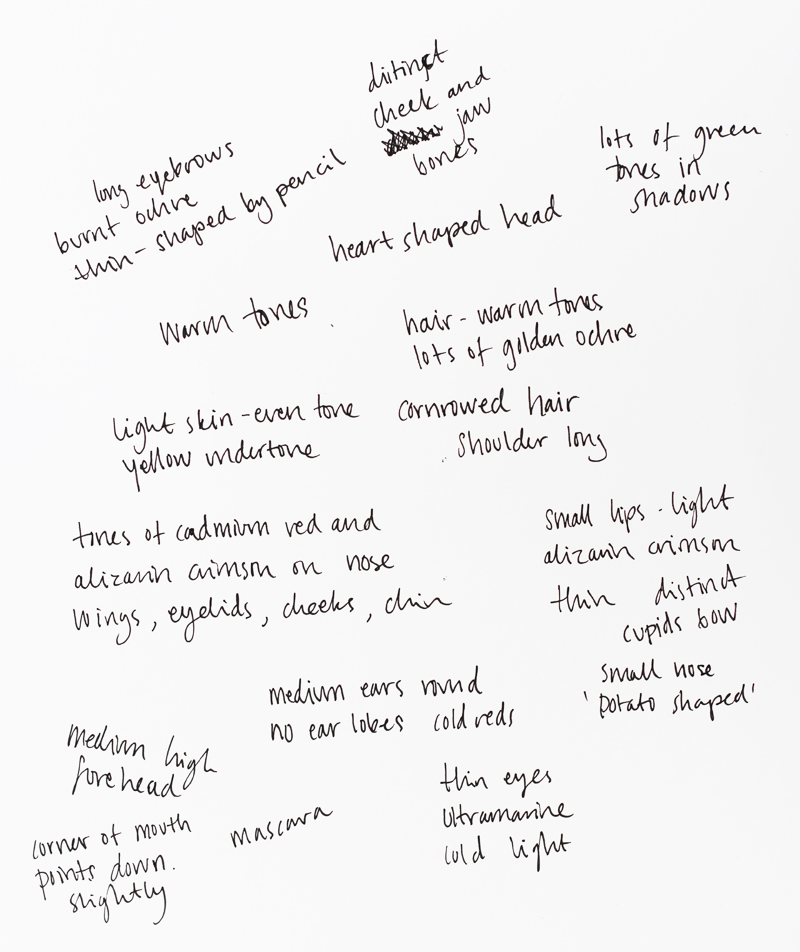 distinct
cheek and
jaw
bones
long eyebrows
burnt ochre
thin - shaped by pencil
lots of green
tones in
shadows
heart shaped head
warm tones
hair - warm tones
lots of golden ochre
light skin - even tone
yellow undertone
cornrowed hair
shoulder long
tones of cadmium red and
alizarin crimson on nose
wings, eyelids, cheeks, chin
small lips - light
alizarin crimson
thin distinct
cupids bow
small nose
'potato shaped'
medium ears round
no ear lobes cold reds
medium high
forehead
thin eyes
ultramarine
cold light
mascara
corner of mouth
points down.
slightly